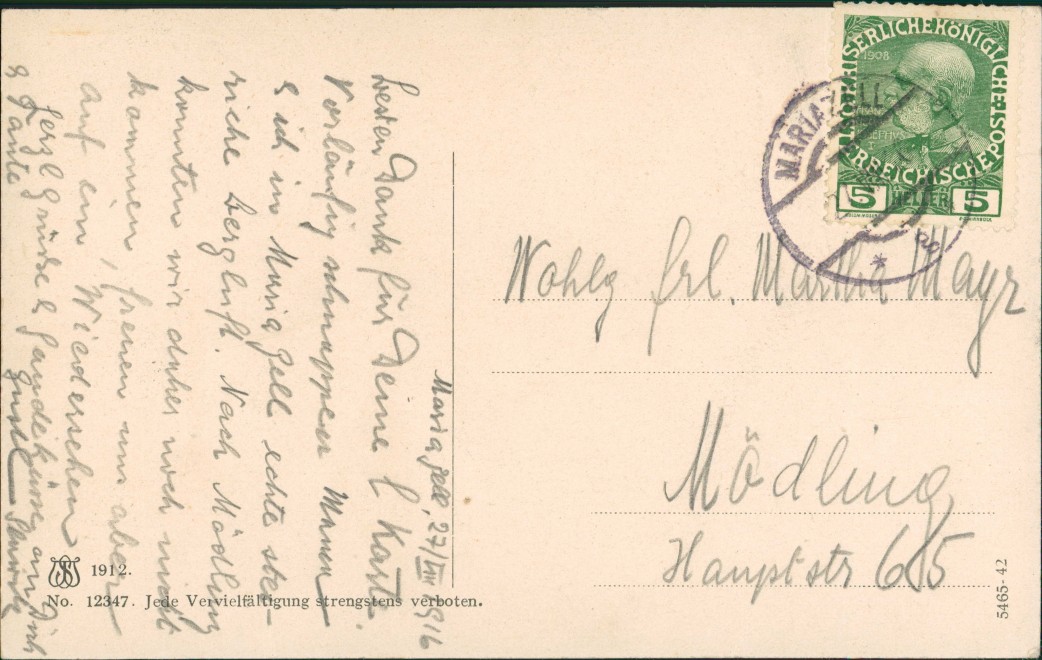 Maria Zell, 27/VIII 1916
besten Dank für Deine l Karte.
Vorläufig schnuppern Minna
& ich in Maria Zell echte stei-
rische Bergluft. Nach Mödling
konnten wir daher noch nicht
kommen, freuen uns aber
auf ein Wiedersehen
Herzl Grüsse & Handküsse an Dich
& Tante
Gusti
KAISERLICHE KÖNIGLICHE
ÖSTERREICHISCHE POST
1908
5 HELLER 5
MARIAZELL
*
Wohlg frl. Martha Mayr
Mödling
Hauptstr 65
1912.
No. 12347. Jede Vervielfältigung strengstens verboten.
5465-42